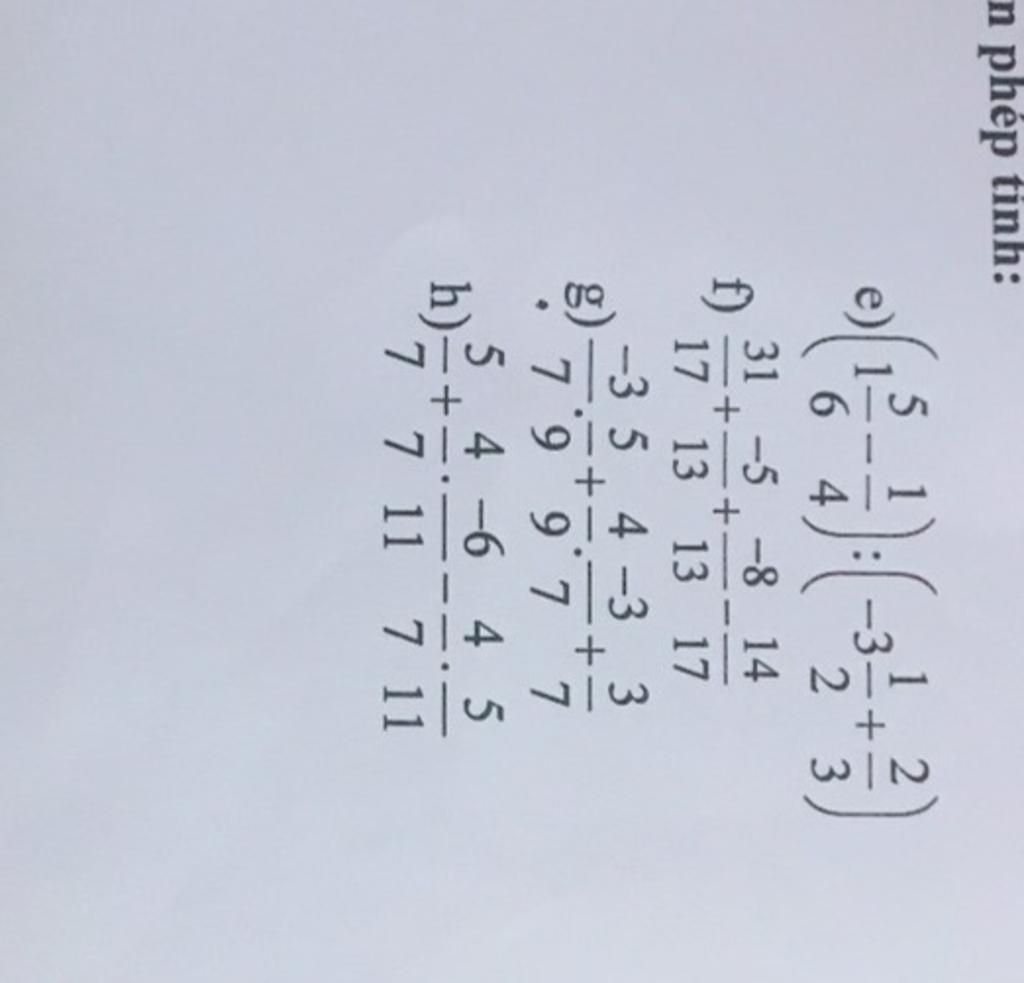 n phép tính:
e) (1 5/6 − 1/4) : (−3 1/2 + 2/3)
f) 31/17 + −5/13 + −8/13 − 14/17
g) −3/7 . 5/9 + 4/9 . −3/7 + 3/7
h) 5/7 + 4/7 . −6/11 − 4/7 . 5/11